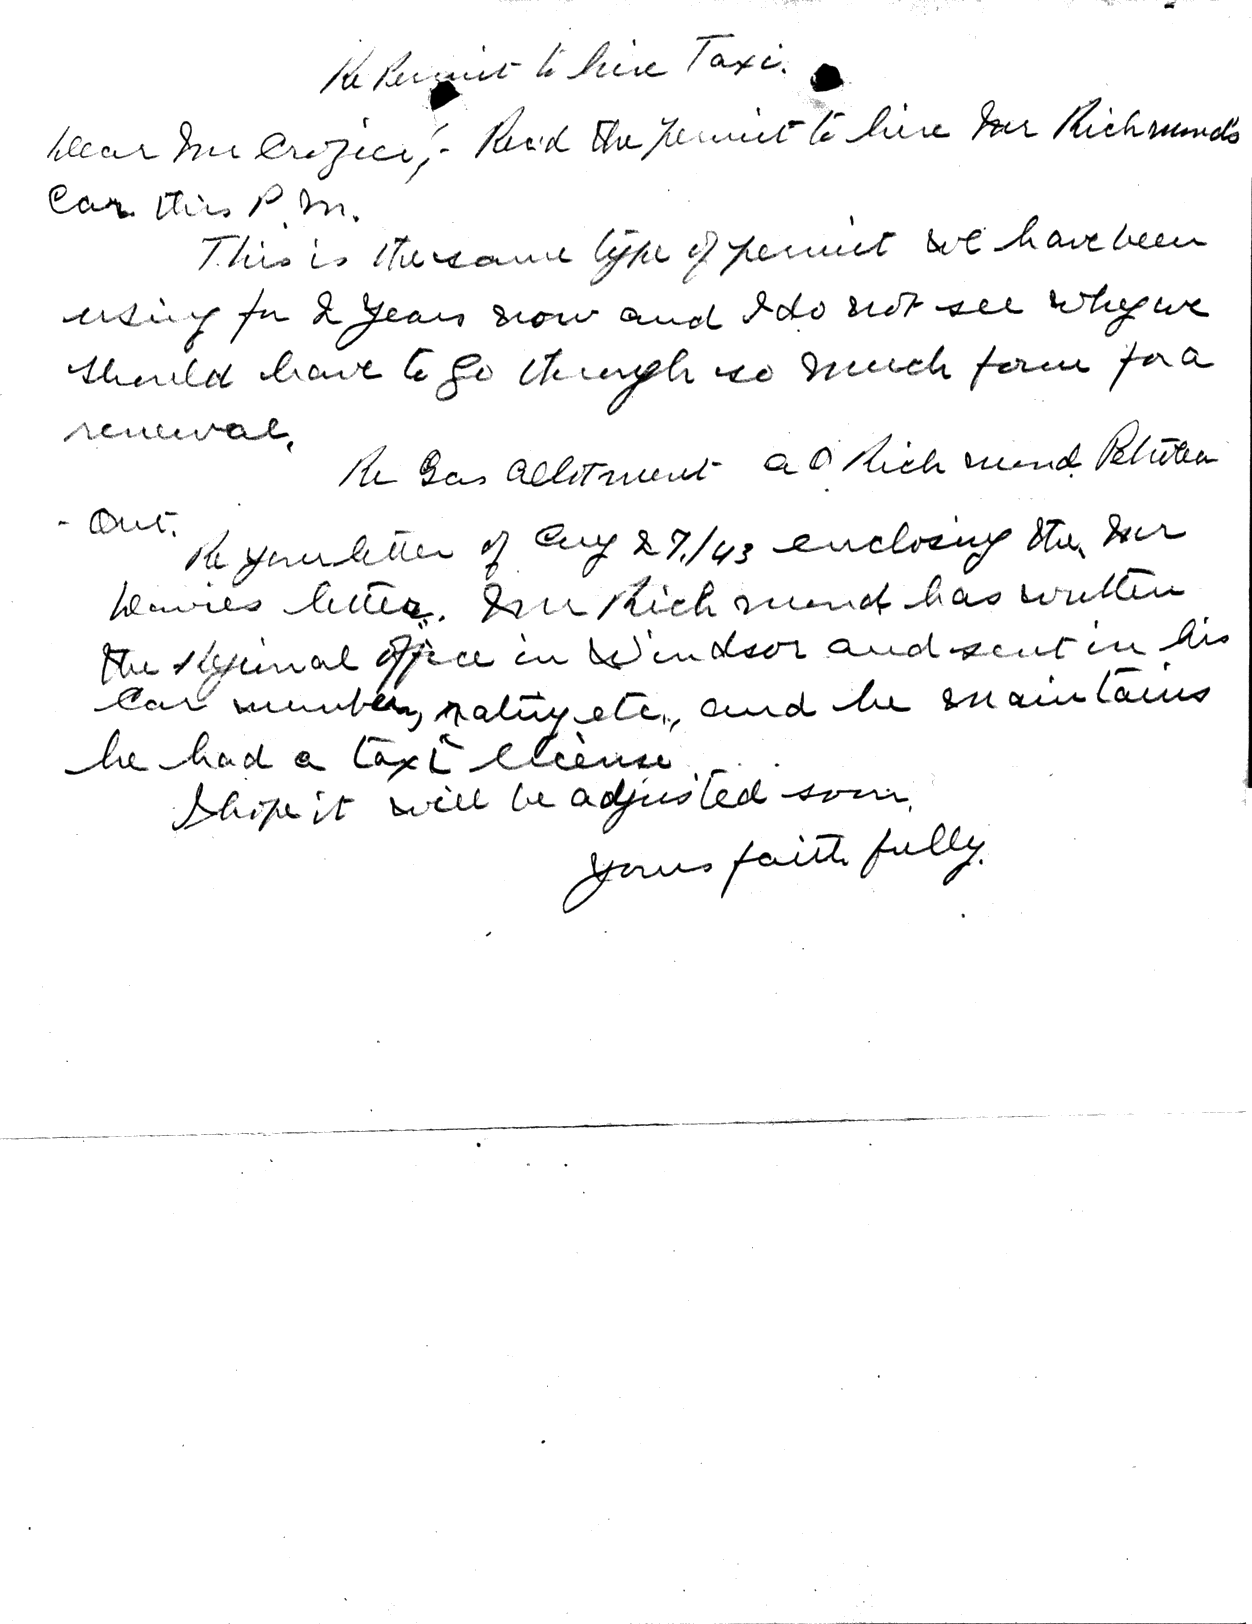 Re Permit to hire Taxi.
Dear Mr Crozier,- Rec'd the permit to hire Mr Richmond's
Car this P.M.
This is the same type of permit we have been
using for 2 years now and I do not see why we
should have to go through so much form for a
renewal.
Re Gas Allotment A O Richmond
- Ont.
Re your letter of Aug 27/43 enclosing the Mr
letter. Mr Richmond has written
the Regional Office in Windsor and sent in his
Car number, rating etc., and he maintains
he had a taxi license
I hope it will be adjusted soon.
Yours faithfully.